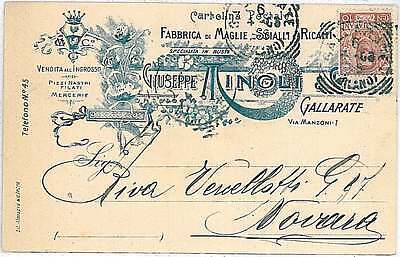 Cartolina Postale
FABBRICA DI MAGLIE - SCIALLI - RICAMI
SPECIALITÀ IN BUSTI
GIUSEPPE MINOLI
GALLARATE
VIA MANZONI-1
VENDITA ALL'INGROSSO
PIZZI NASTRI
FILATI
MERCERIE
Telefono Nº 45
Sig.
Riva Venellatti G.
Novara